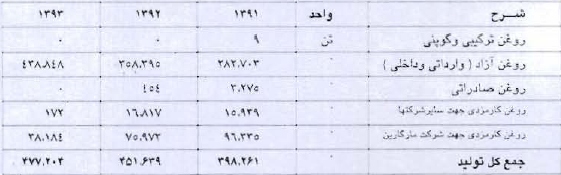 شــرح واحد ۱۳۹۱ ۱۳۹۲ ۱۳۹۳
روغن ترکیبی وکوپنی تن ۹ ۰ ۰
روغن آزاد ( وارداتی وداخلی ) " ۲۸۲،۷۰۳ ۳۵۸،۳۹۵ ٤۳۸،۸٤۸
روغن صادراتی " ۳،۲۷۵ ٤۵٤ ۰
روغن کارمزدی جهت سایرشرکتها " ۱۵،۹۳۹ ۱٦،۸۱۷ ۱۷۲
روغن کارمزدی جهت شرکت مارگارین " ۹٦،۳۳۵ ۷۵،۹۷۳ ۳۸،۱۸٤
جمع کل تولید " ۳۹۸،۲٦۱ ٤۵۱،٦۳۹ ٤۷۷،۲۰٤